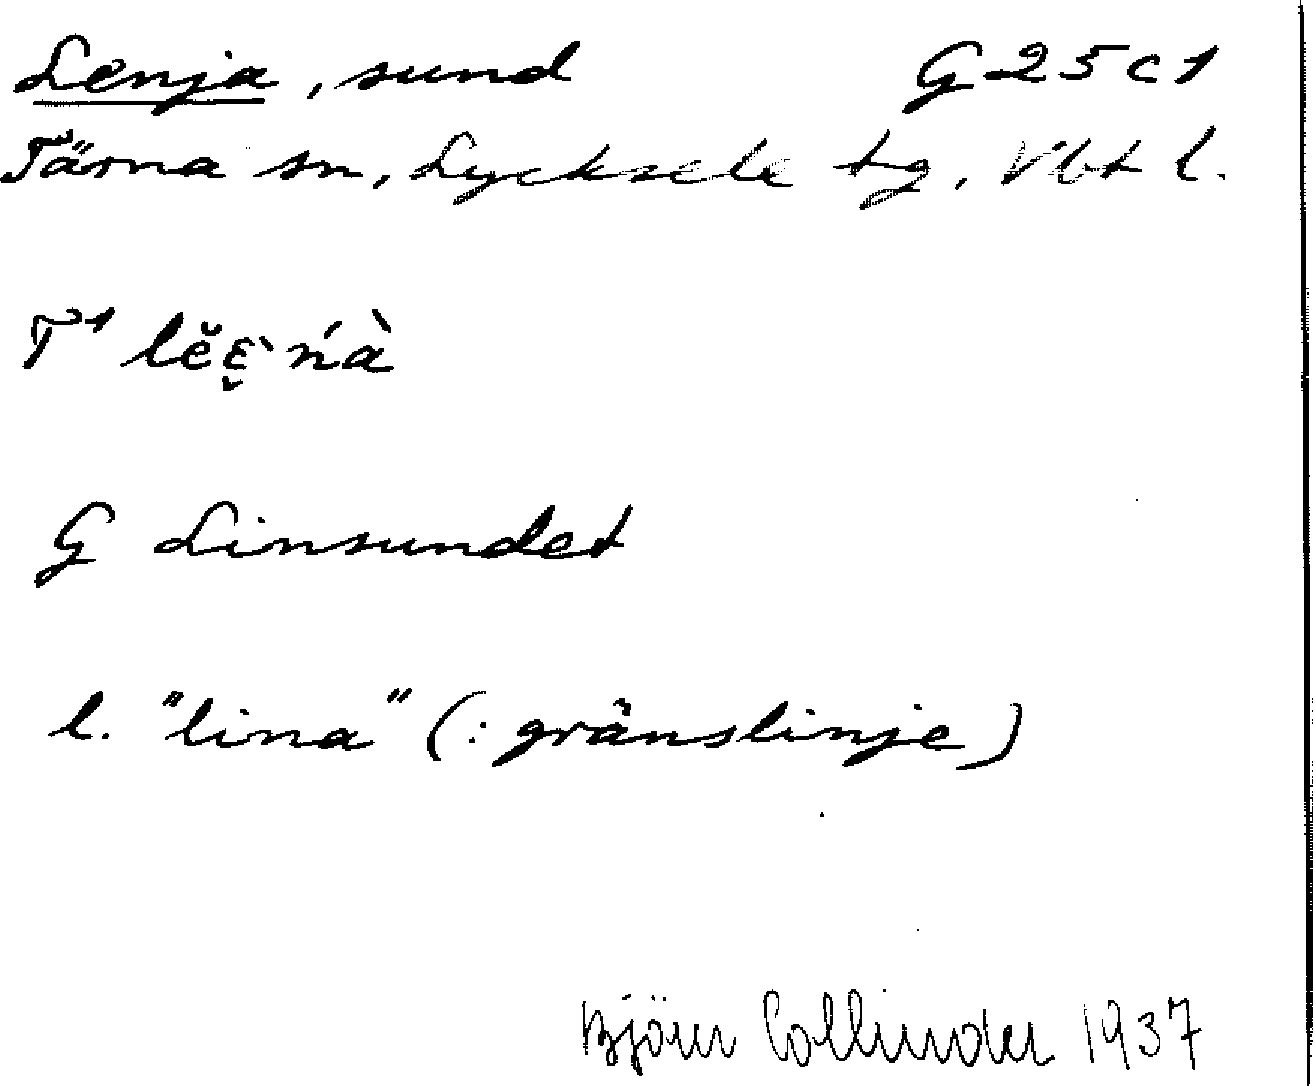 Lenja, sund G25c1
Tärna sn, Lycksele tg, Vbt l.
T¹ lĕɛ̬̀ńà
G Linsundet
l. "lina" (: gränslinje)
Björn Collinder 1937